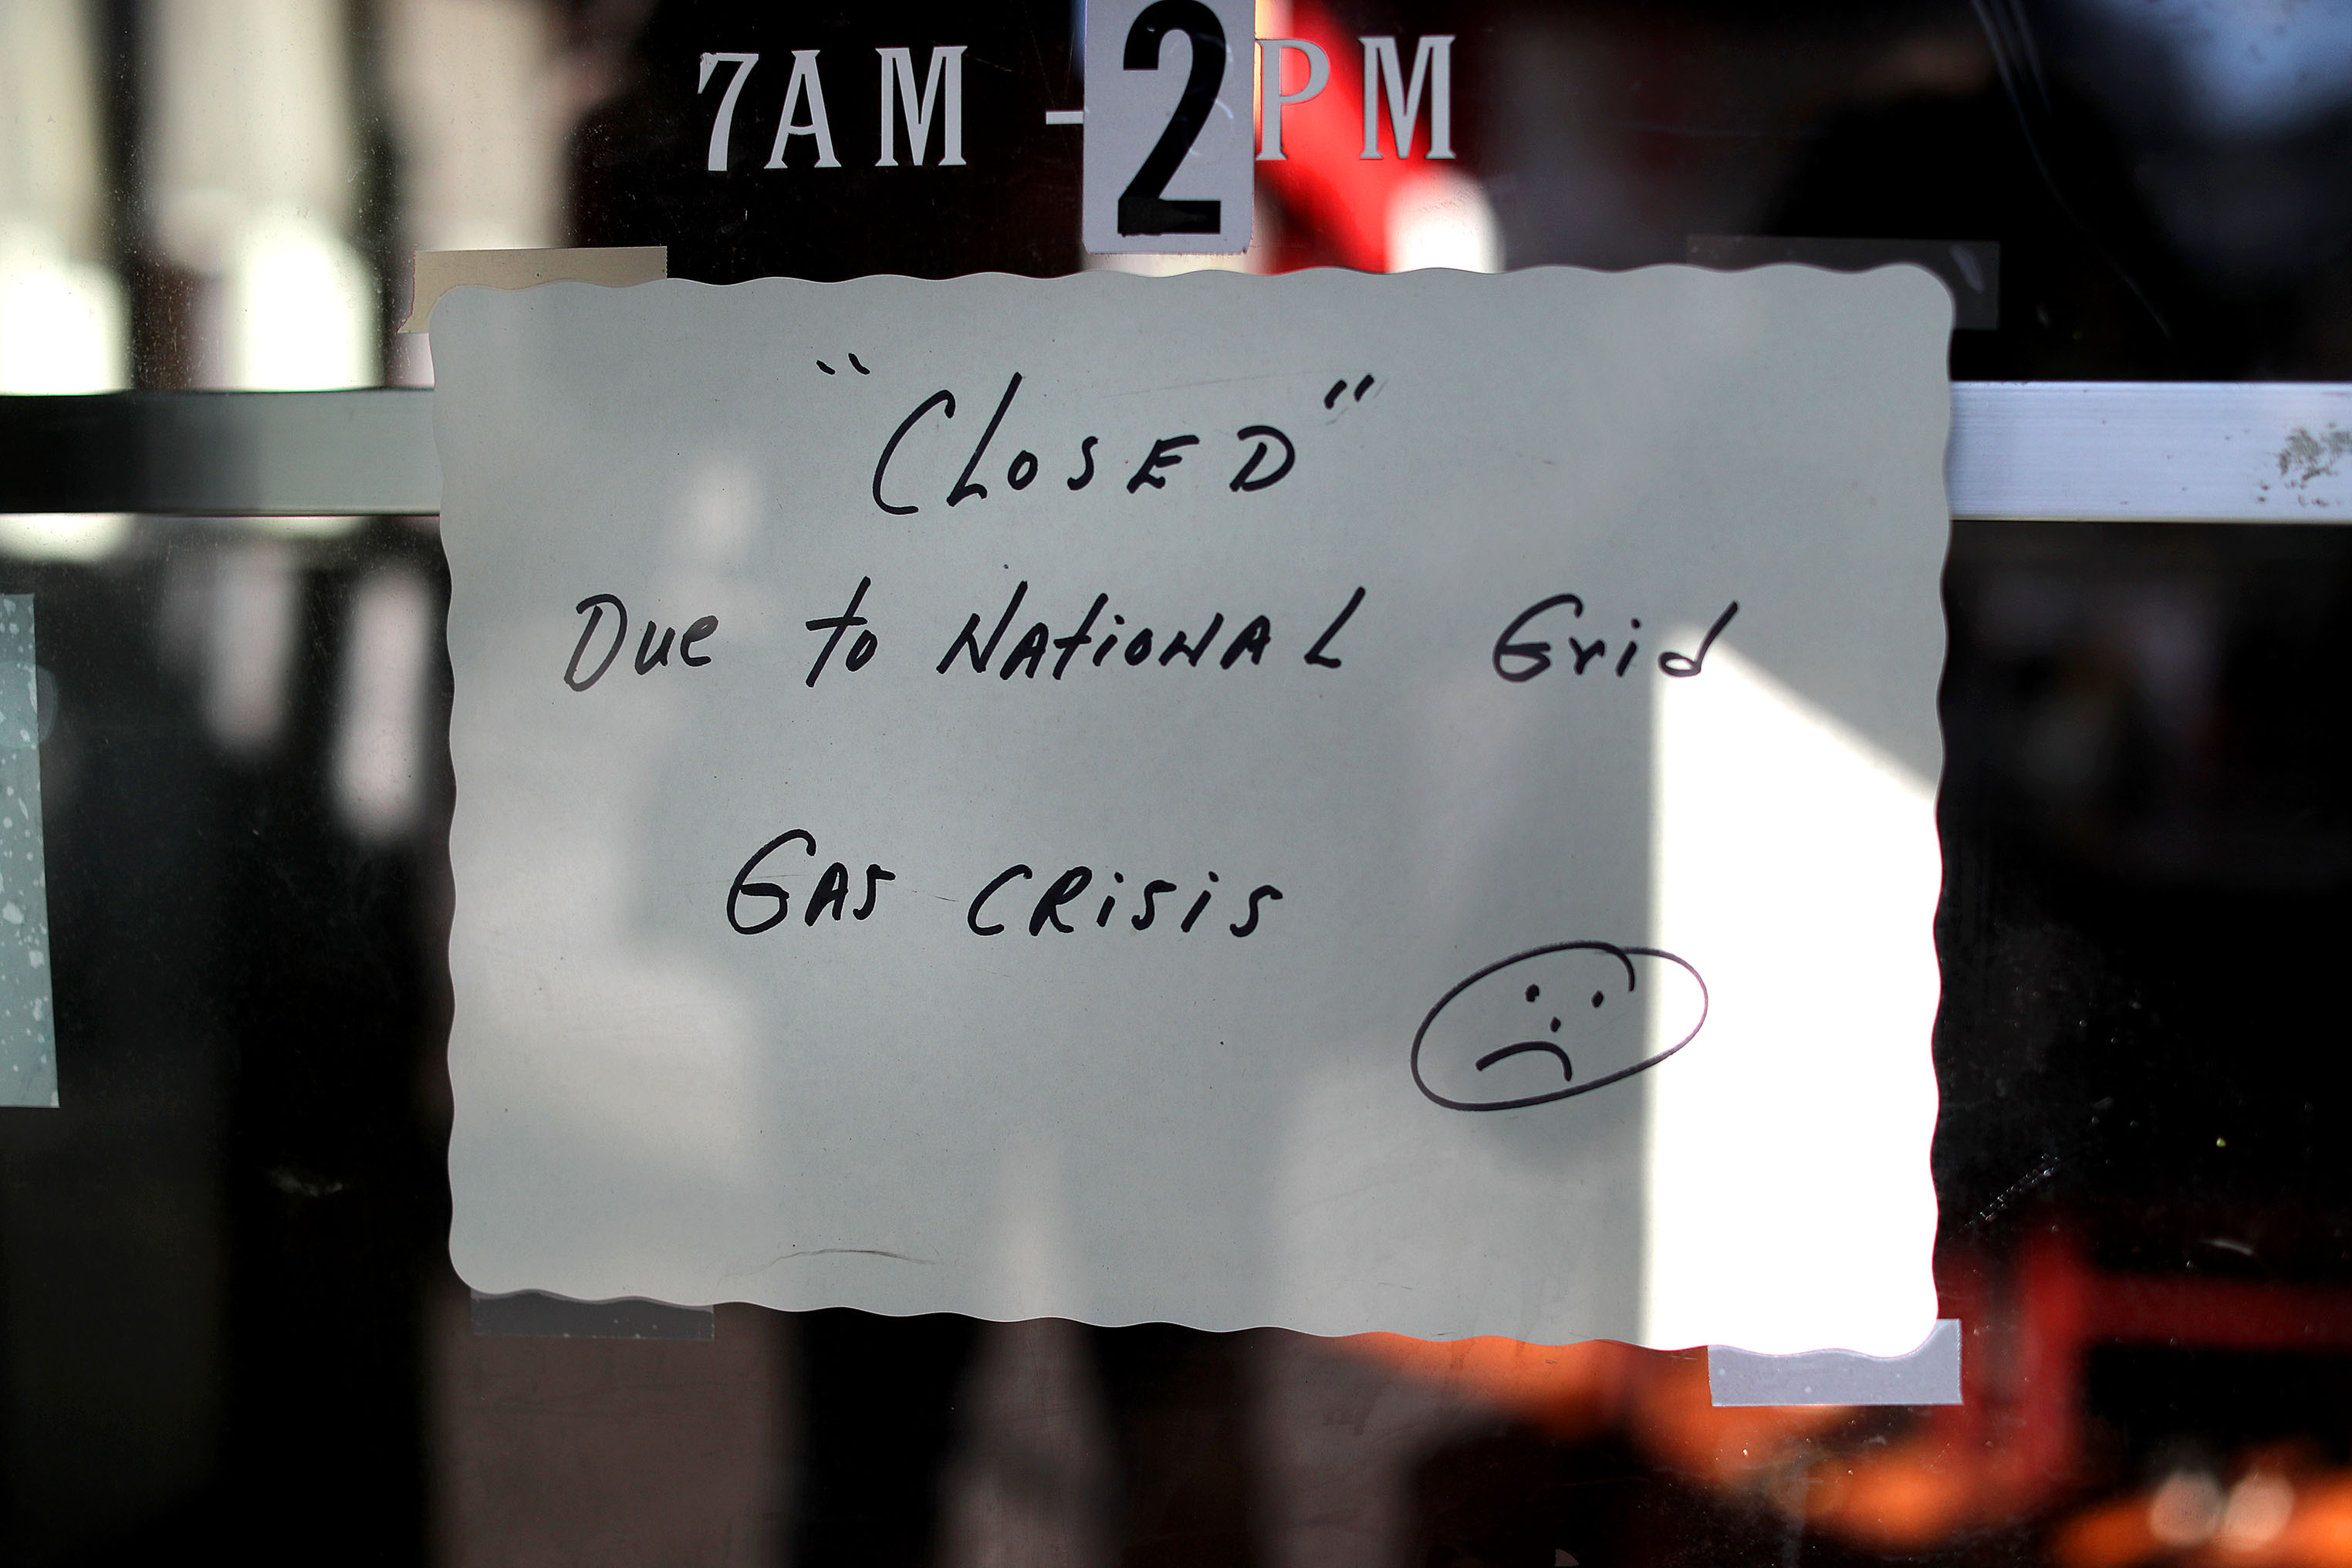 7AM - 2PM
"CLOSED"
Due to NAtioNAL Grid
GAS CRisis